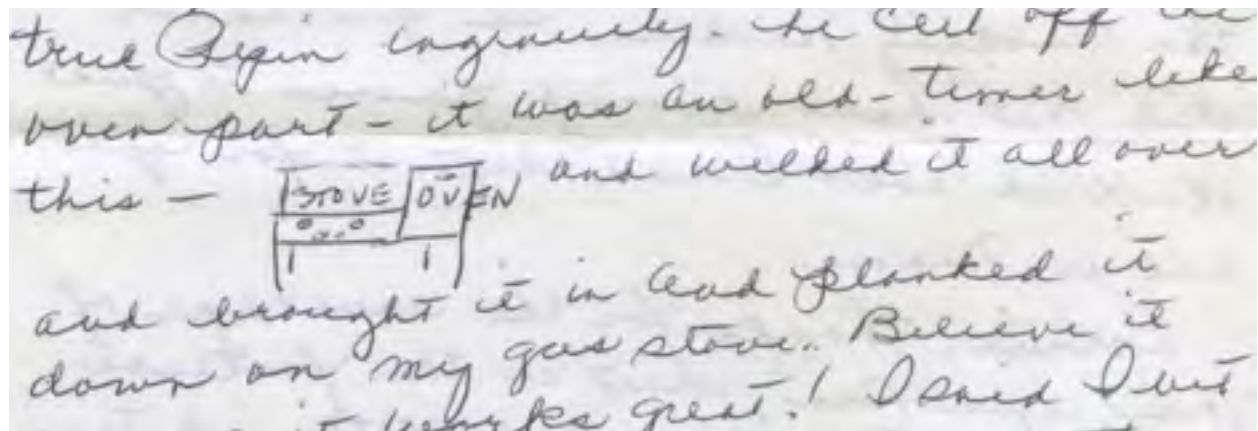 true ingenuity. He cut off the
oven part - it was an old-timer like
this - STOVE OVEN and welded it all over
and brought it in and planked it
down on my gas stove.. Believe it
it works great! I said I bet